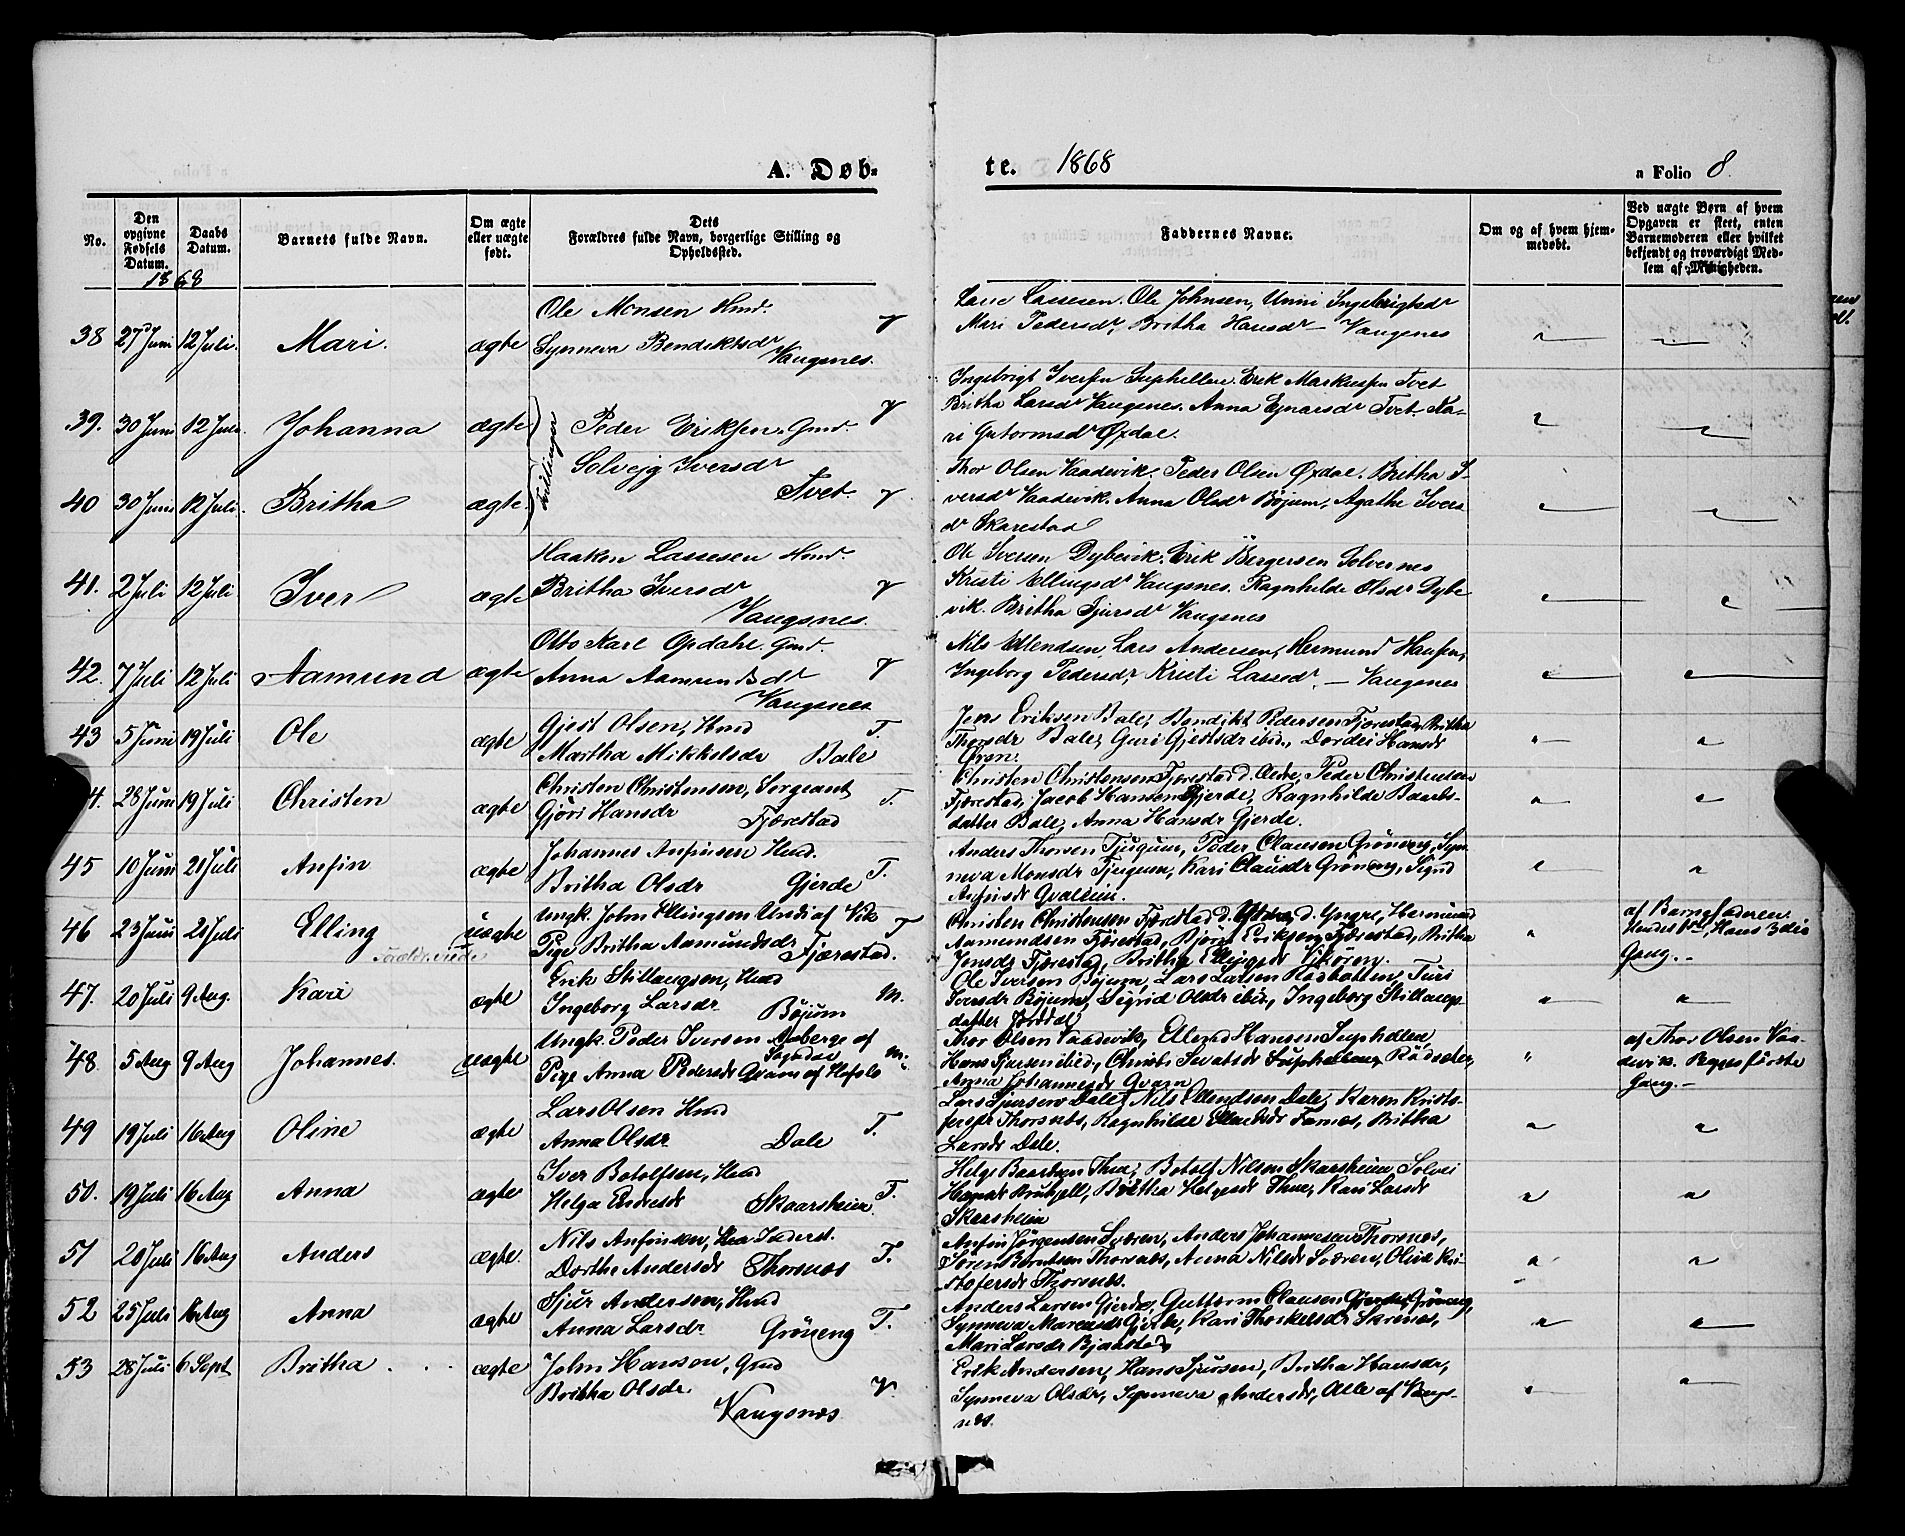 A. Døb-
te. 1868
a Folio 8.
No.
Den opgivne Fødsels Datum.
Daabs Datum.
Barnets fulde Navn.
Om ægte eller uægte født.
Dets Forældres fulde Navn, borgerlige Stilling og Opholdssted.
Faddernes Navne.
Om og af hvem hjemmedøbt.
Ved uægte Børn af hvem Opgaven er skeet, enten Barnemoderen eller hvilket bekjendt og troværdigt Medlem af Menigheden.
1868
38 27 Juni 12 Juli. Mari. ægte
Ole Monsen Hmd.
Synneva Bendiktsdr Vangsnes. V
Lasse Lassesen. Ole Johnsen, Unni Ingebrigtsdr
Mari Pedersdr, Britha Hansdr — Vangsnes
39. 30 Juni 12 Juli Johanna ægte
Tvillinger
Peder Eriksen. Gmd. V
Solvejg Iversdr
Tvet.
Ingebrigt Iversen Suphellen. Erik Markusen Tvet
Britha Larsdr Vangsnes. Anna Ejnarsdr Tvet. Ka-
ri Gutormsdr Øxdal.
40 30 Juni 12 Juli. Britha ægte. V
Thor Olsen Vaadevik. Peder Olsen Øxdal. Britha I-
versdr Vaadevik. Anna Olsdr Bøjum, Agathe Ivers
dr Skarestad
41. 2 Juli 12 Juli Iver ægte
Haaken Lassesen Hmd.
Britha Iversdr V
Vangsnes.
Ole Iversen Dybevik. Erik Børgersen Solvernes
Kristi Ellingsdr Vangsnes. Ragnhilde Olsdr Dybe
vik. Britha Sjursdr Vangsnes
42. 7 Juli 12 Juli Aamund ægte
Otto Karl Opdahl. Gmd. V
Anna Aamundsdr
Vangsnes
Nils Erlendsen, Lars Andersen, Hermund Hansen,
Ingeborg Pedersdr, Kristi Lassedr. — Vangsnes
43 5 Juni 19 Juli Ole ægte
Gjest Olsen, Hmd T.
Martha Mikkelsdr Bale
Jens Eriksen Bale, Bendikt Pedersen Fjærestad, Britha
Thorsdr Bale, Guri Gjestsdr ibid., Dordei Hansdr
Øren.
4. 28 Juni 19 Juli Christen ægte
Christen Christensen, Sergeant T.
Gjøri Hansdr Fjærestad
Christen Christensen Fjærestad d. Ældre, Peder Christensen
Fjærestad, Jacob Hansen Gjerde, Ragnhilde Baards-
datter Bale, Anna Hansdr Gjerde.
45 10 Juni 21 Juli Anfin ægte
Johannes Anfinsen Hmd.
Britha Olsdr Gjerde T.
Anders Thorsen Tjugum, Peder Clausen Grøneng, Syn-
neva Monsdr Tjugum, Kari Clausdr Grøneng, Sigrid
Anfinsdr
46 23 Juni 21 Juli Elling uægte
Ungk. John Ellingsen Undi af Vik T
Pige Britha Aamundsdr Fjærestad.
Christen Christensen Fjærestad d. Yngre, Hermund
Aamundsen Fjærestad, Bjørn Eriksen Fjærestad, Britha
Jensdr Fjærestad, Britha Ellingsdr
af Barnefaderen.
Gang. —
47. 20 Juli 9 Aug. Kari ægte
Erik Stillaugsen, Hmd
Ingeborg Larsdr Bøjum M.
Ole Iversen Bøjum, Lars Larsen Turi
Iversdr Bøjum, Sigrid Olsdr ibid, Ingeborg Stillaugs-
datter Jorddal
48. 5 Aug 9 Aug Johannes. uægte
Ungk. Peder Iversen Amberge af Sogndal M.
Pige Anna Pedersdr Qvam af Hafslo
Thor Olsen Vaadevik, Ellend Hansen Suphellen,
Hans Sjursen ibid, Christi
Anna Johannesdr Qvam
af Thor Olsen Vaa-
devik. Begges første
Gang. —
49 19 Juli 16 Aug Oline ægte
Lars Olsen Hmd
Anna Olsdr Dale T.
Lars Sjursen Dale, Nils Ellendsen Dale, Karen Kristo-
fersdr Thorsnæs, Ragnhilde Farnæs, Britha
Larsdr Dale.
50. 19 Juli 16 Aug Anna ægte
Iver Botolfsen, Hmd
Helga Skaarsheim T.
Helge Baardsen Thue, Botolf Nilsen Skarsheim, Solvei
Hansdr Britha Helgesdr Thue, Kari Larsdr
Skarsheim
51 20 Juli 16 Aug Anders ægte.
Nils Anfinsen,
Dorthe Andersdr Thorsnæs T.
Anfin Jørgensen Sværen, Anders Johannesen Thorsnæs,
Søren Berntsen Thorsnæs, Anna Nilsdr Sværen, Oline Kri-
stofersdr Thorsnæs.
52 25 Juli 16 Aug Anna ægte
Sjur Andersen, Hmd
Anna Larsdr Grøneng T.
Anders Larsen Gjerde, Guttorm Clausen Grøneng,
Synneva Gjerde, Kari Thorkelsdr Skrenes,
Mari Larsdr Bjaastad
53 28 Juli 6 Sept Britha ægte
John Hansen, Gmd
Britha Olsdr V.
Vangsnes
Erik Andersen, Hans Sjursen, Britha Hansdr,
Synneva Olsdr, Synneva Andersdr, Alle af Vangs-
nes.